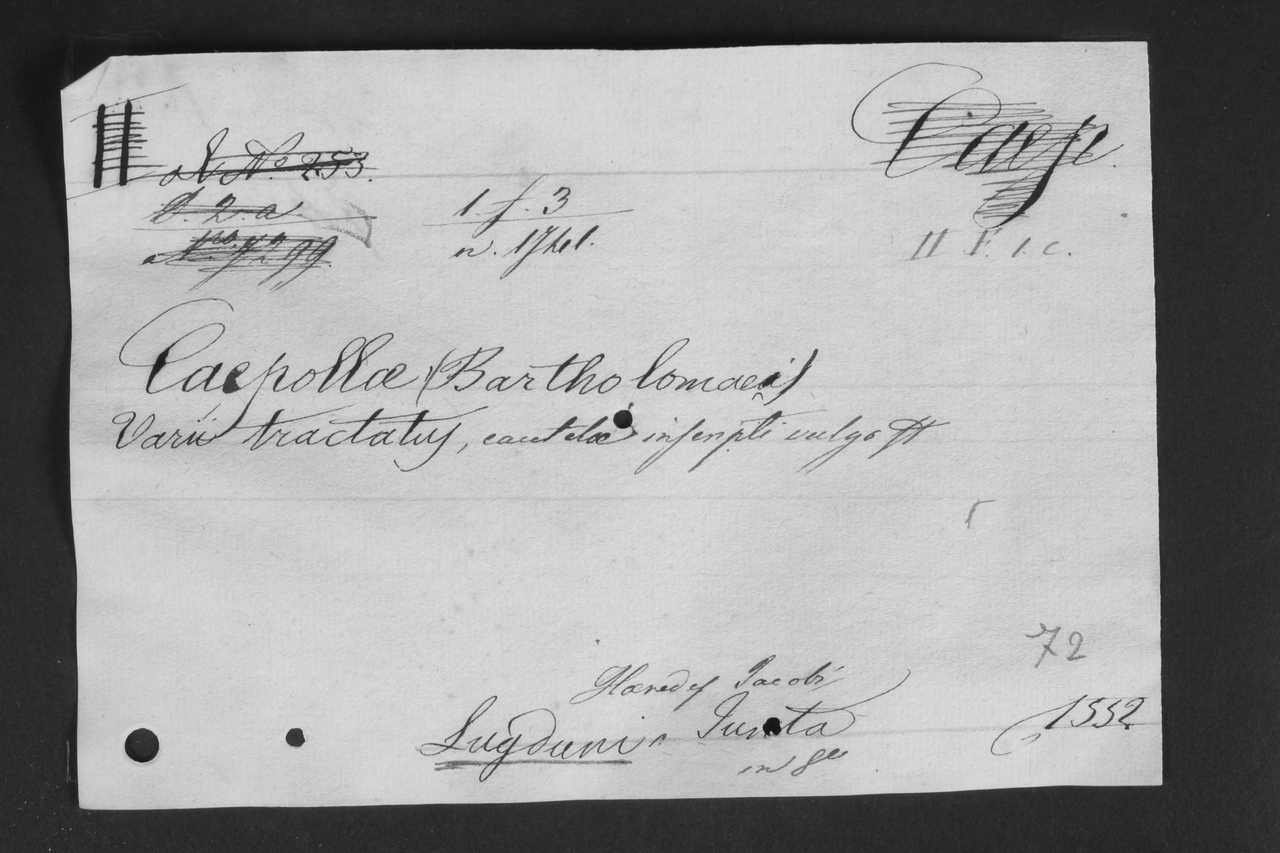 II
N.º 253.
O. 2 a.
N.ro 7299.
1. f. 3
n. 1741.
Caep.
II F. 1. c.
Caepollae (Bartholomaei)
Varii tractatus, cautelae inscripti vulgo
72
Haeredes Jacobi
Lugduni Junta 1552
in 8º